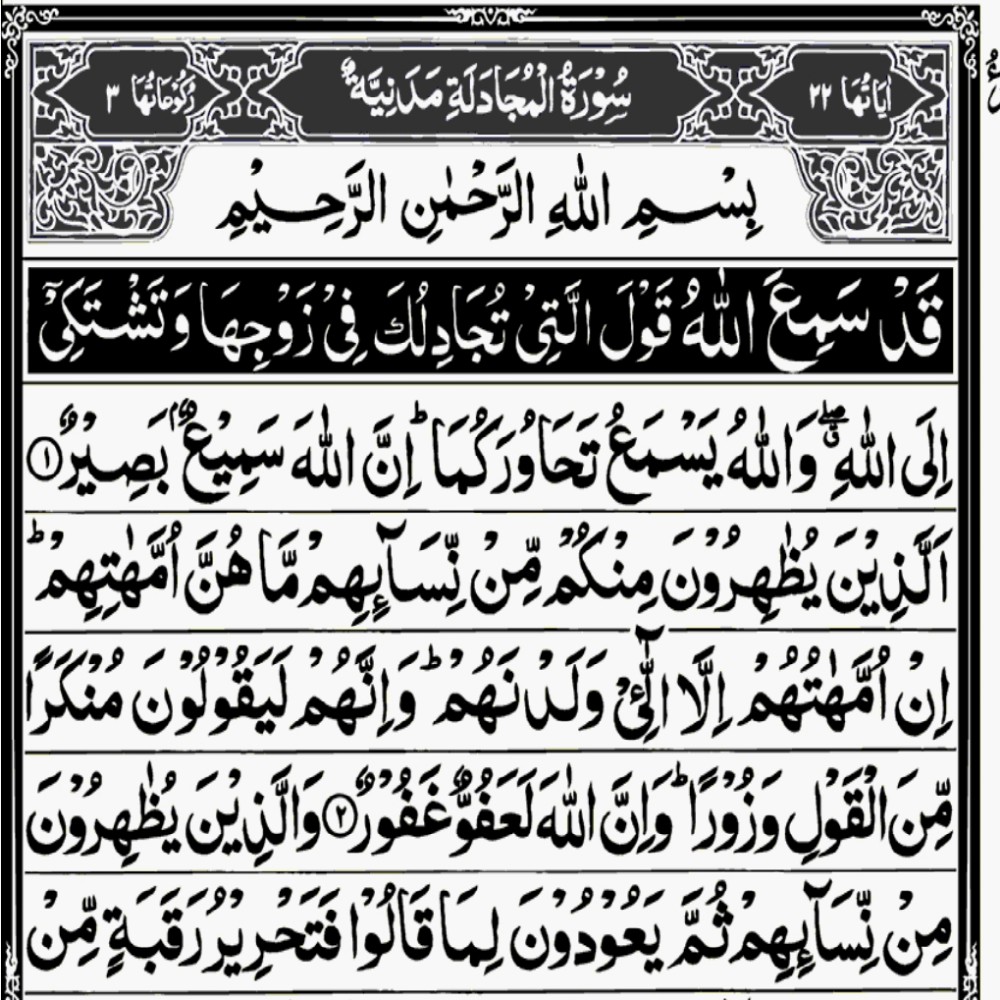 اٰيَاتُهَا ٢٢ سُوْرَةُ الْمُجَادَلَةِ مَدَنِيَّةٌ رُكُوْعَاتُهَا ٣
بِسْمِ اللّٰهِ الرَّحْمٰنِ الرَّحِيْمِ
قَدْ سَمِعَ اللّٰهُ قَوْلَ الَّتِيْ تُجَادِلُكَ فِيْ زَوْجِهَا وَتَشْتَكِيْٓ
اِلَى اللّٰهِ ۖق وَاللّٰهُ يَسْمَعُ تَحَاوُرَكُمَا ؕ اِنَّ اللّٰهَ سَمِيْعٌۢ بَصِيْرٌ ①
اَلَّذِيْنَ يُظٰهِرُوْنَ مِنْكُمْ مِّنْ نِّسَآىِٕهِمْ مَّا هُنَّ اُمَّهٰتِهِمْ ؕ
اِنْ اُمَّهٰتُهُمْ اِلَّا الّٰٓـِٔيْ وَلَدْنَهُمْ ؕ وَاِنَّهُمْ لَيَقُوْلُوْنَ مُنْكَرًا
مِّنَ الْقَوْلِ وَزُوْرًا ؕ وَاِنَّ اللّٰهَ لَعَفُوٌّ غَفُوْرٌ ② وَالَّذِيْنَ يُظٰهِرُوْنَ
مِنْ نِّسَآىِٕهِمْ ثُمَّ يَعُوْدُوْنَ لِمَا قَالُوْا فَتَحْرِيْرُ رَقَبَةٍ مِّنْ